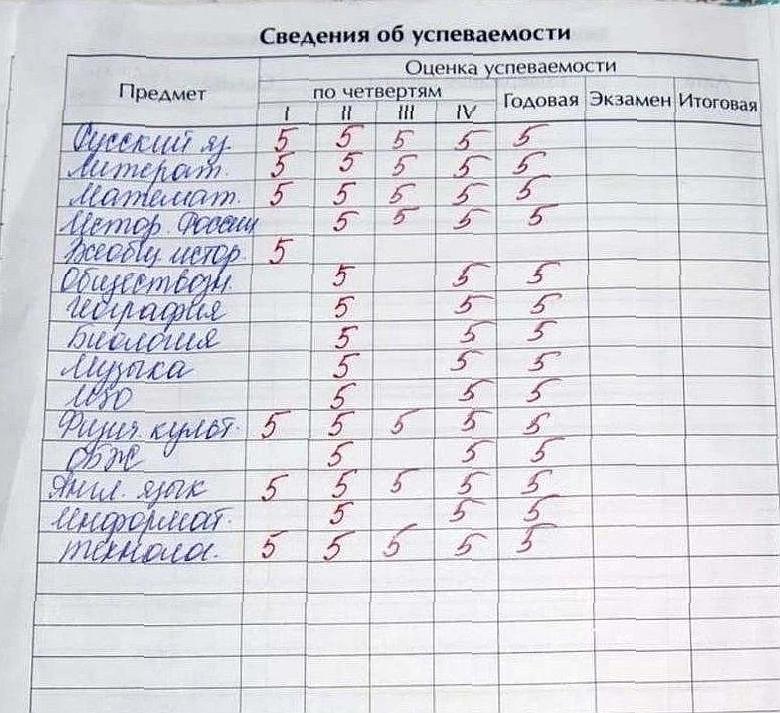 Сведения об успеваемости
Предмет Оценка успеваемости
по четвертям Годовая Экзамен Итоговая
I II III IV
Русский яз. 5 5 5 5 5
Литерат. 5 5 5 5 5
Математ. 5 5 5 5 5
Истор. России 5 5 5 5
Всеобщ. истор. 5
Обществозн. 5 5 5
География 5 5 5
Биология 5 5 5
Музыка 5 5 5
ИЗО 5 5 5
Физич. культ. 5 5 5 5 5
ОБЖ 5 5 5
Англ. язык 5 5 5 5 5
Информат. 5 5 5
Технолог. 5 5 5 5 5